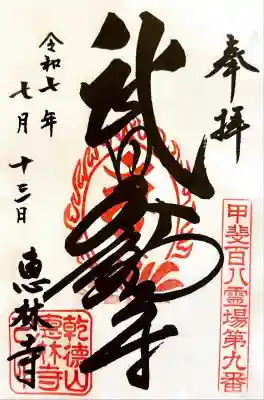 奉拝
甲斐百八霊場第九番
武田不動尊
令和七年
七月十三日
恵林寺
乾徳山
恵林寺